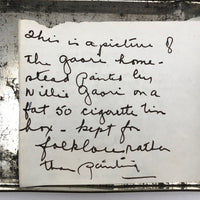 This is a picture of
the Gaori home-
stead painted by
Willie Gaori on a
fat 50 cigarette tin
box - kept for
folklore rather
than painting